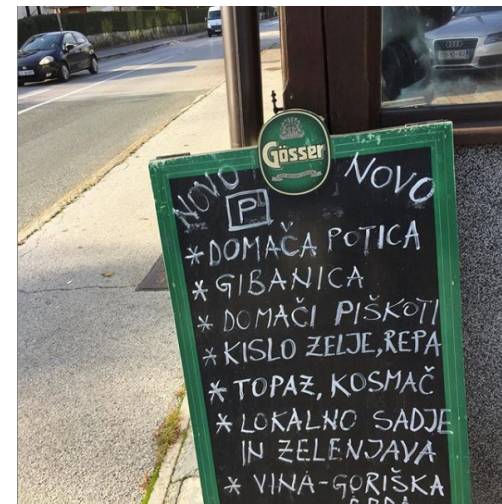 Gösser
NOVO NOVO
P
* DOMAČA POTICA
* GIBANICA
* DOMAČI PIŠKOTI
* KISLO ZELJE, REPA
* TOPAZ, KOSMAČ
* LOKALNO SADJE
IN ZELENJAVA
* VINA-GORIŠKA